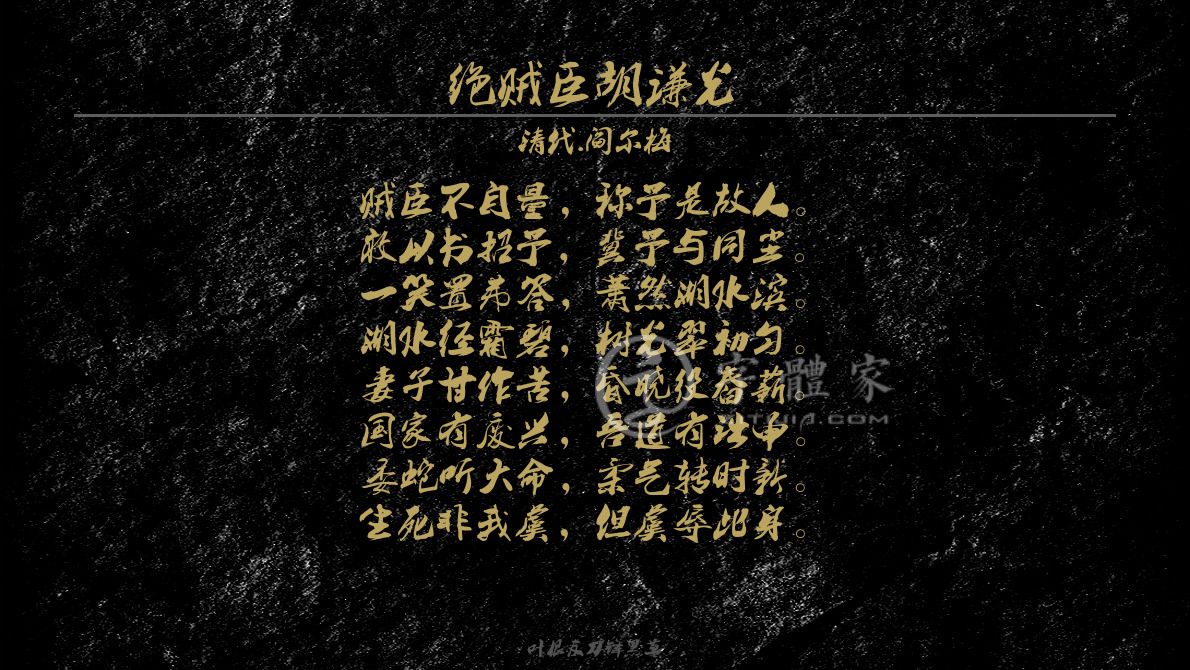 绝贼臣胡谦光
清代.阎尔梅
贼臣不自量，称予是故人。
敢以书招予，冀予与同尘。
一笑置弗答，萧然湖水滨。
湖水经霜碧，树光翠初匀。
妻子甘作苦，昏晓役舂薪。
国家有废兴，吾道有诎申。
委蛇听大命，柔气转时新。
生死非我虞，但虞辱此身。
字體家
ZITIJIA.COM
叶根友刀锋黑草